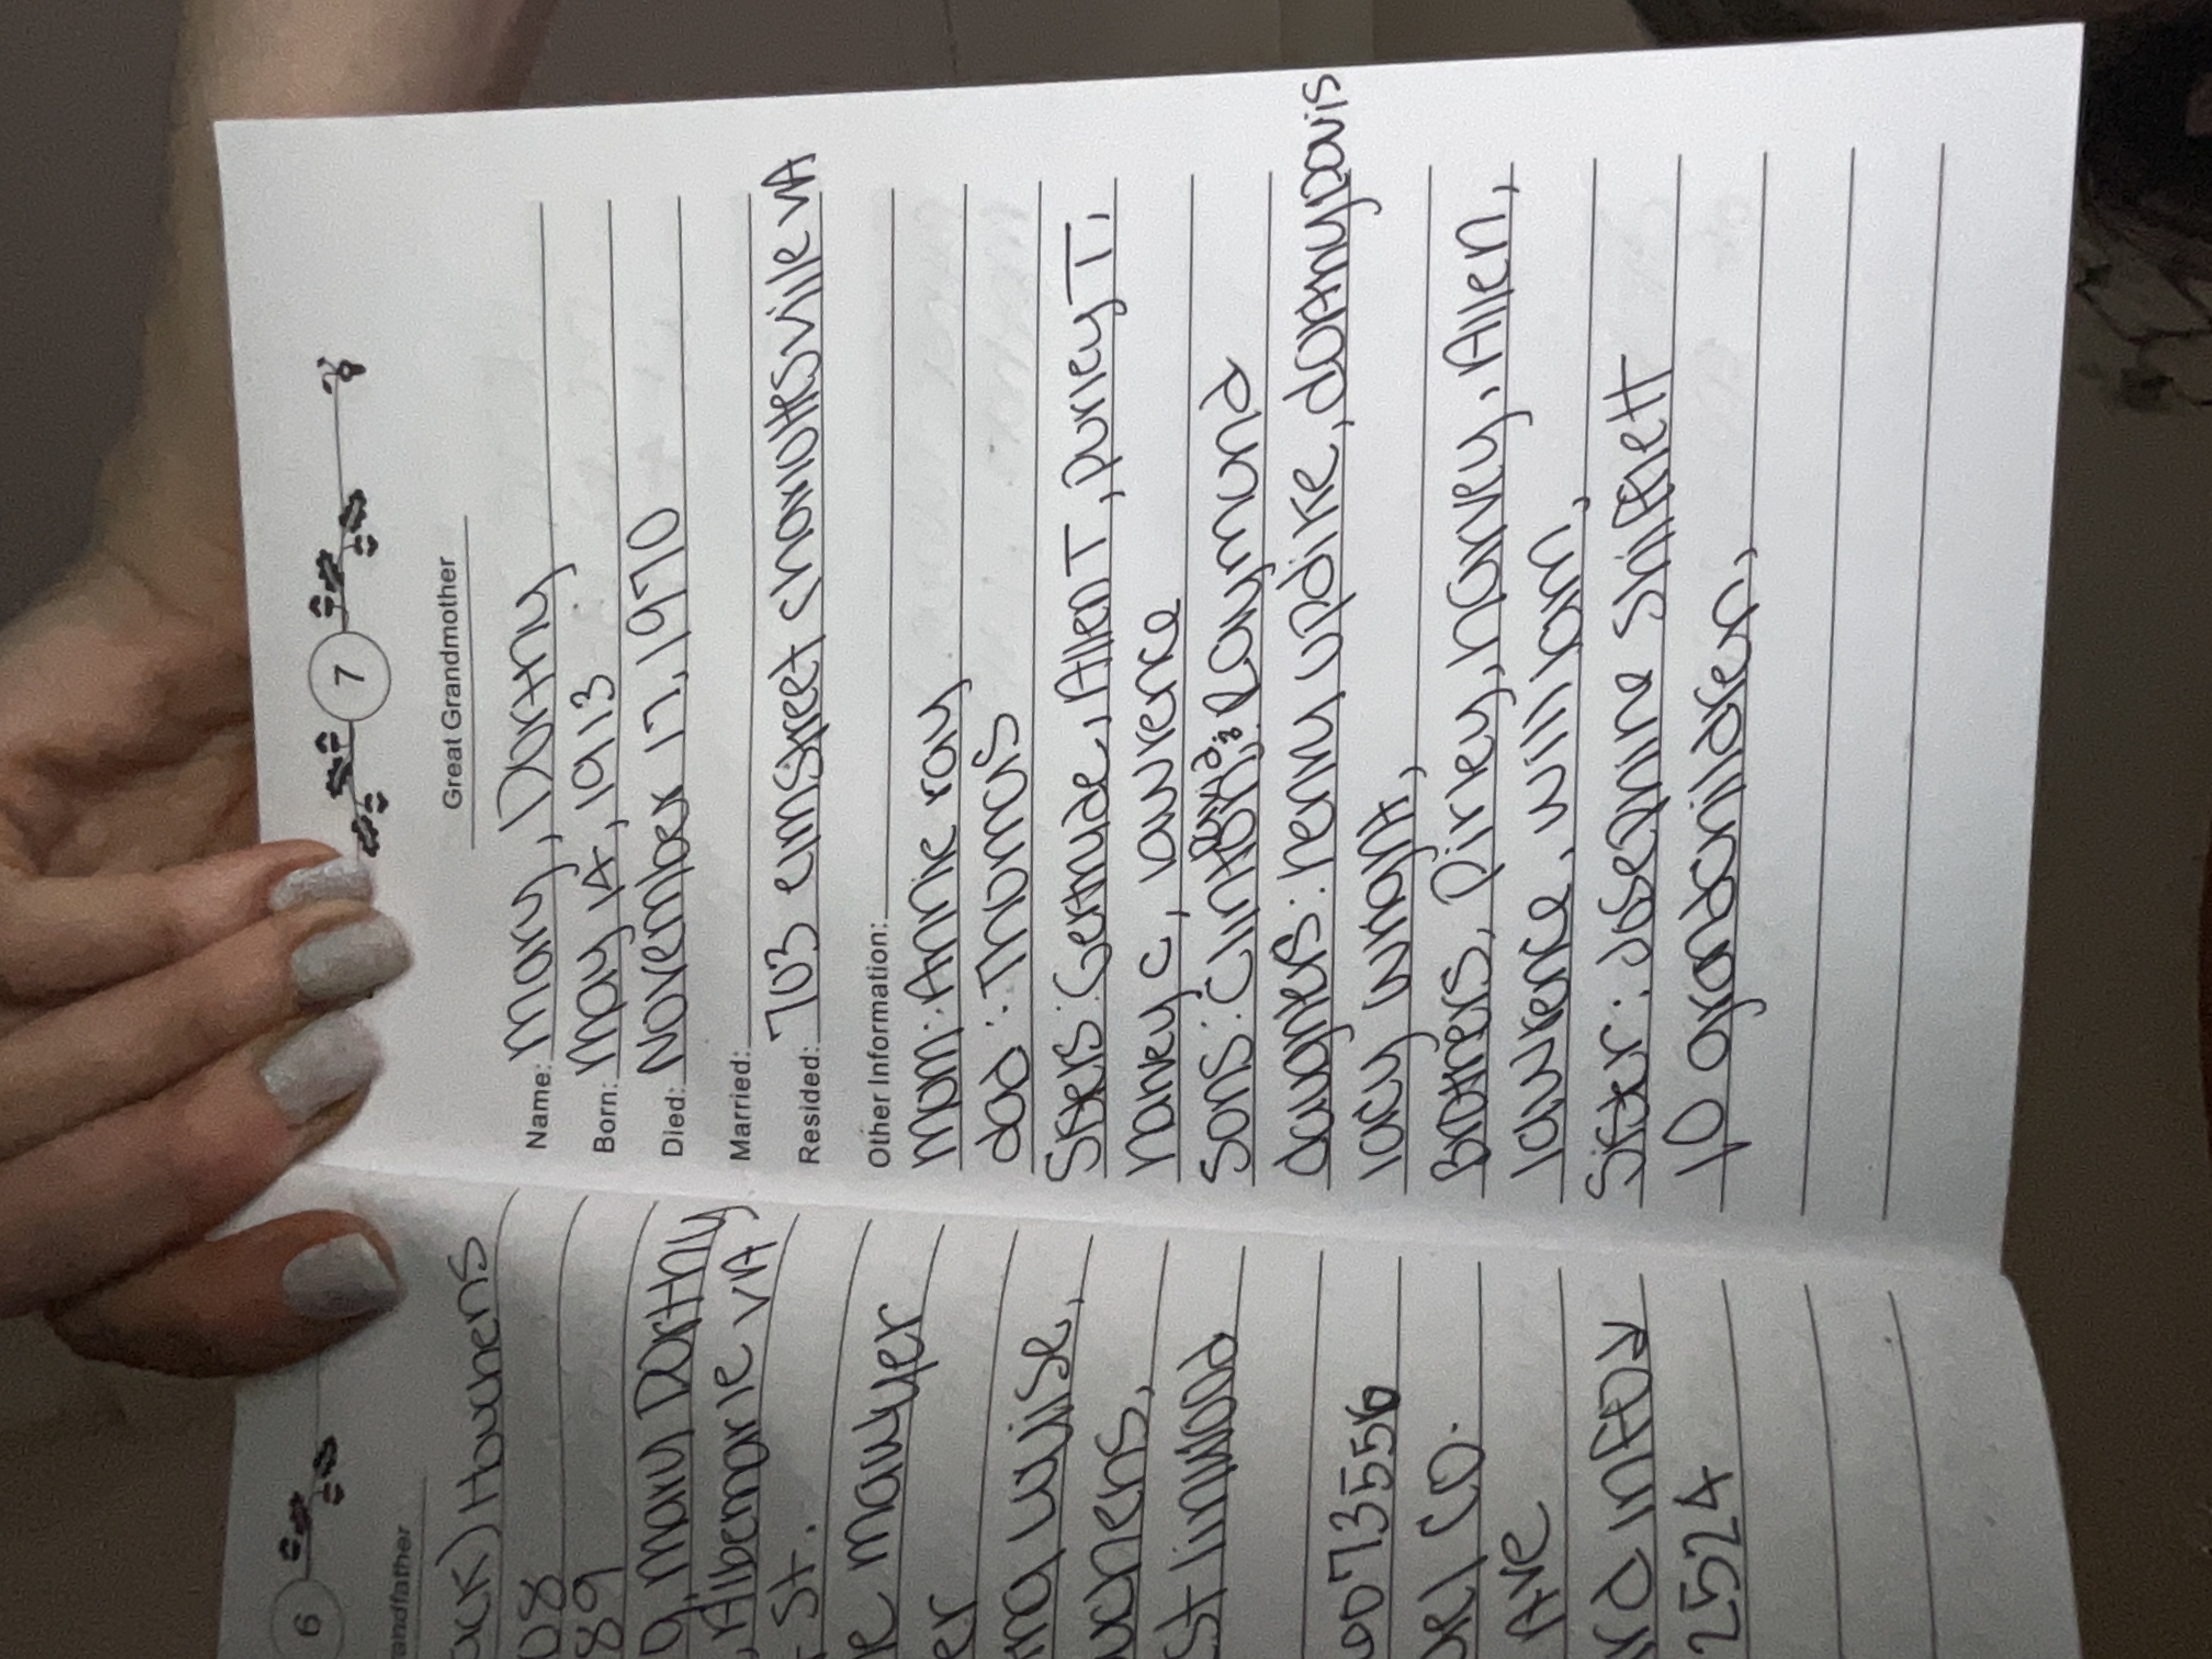 7
Great Grandmother
Name: mary, Dorthy
Born: may 14, 1913
Died: November 17, 1970
Married:
Resided: 703 elmstreet charlottesville VA
Other Information:
mom: Annie ray
dad: Thomas
Sisters: Gertrude, Allen T, purley T,
harvey C, lawrence
sons: Clinton, Raymond
daughters: remy updike, dorthy Davis
lacy wright,
Brothers, Piney, harvey, Allen,
lawrence, william,
Sister: Josephine Shifflett
10 grandchildren,
6
randfather
ack) Houchens
08
89
9, mary Dorthy
, Albemarle VA
St.
e mawyer
er
na luise,
uchens,
st linwood
6073556
el CO.
Ave
rd infor
2524